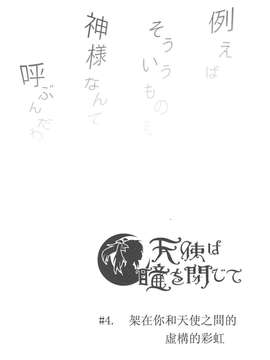 例えば
そういうものを
神様なんて
呼ぶんだろ
天使は
瞳を閉じて
#4. 架在你和天使之間的
虛構的彩虹